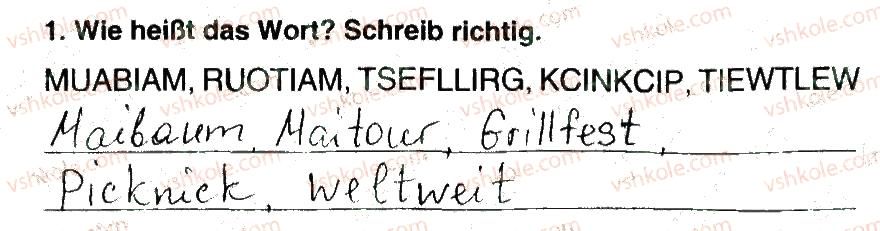 1. Wie heißt das Wort? Schreib richtig.
MUABIAM, RUOTIAM, TSEFLLIRG, KCINKCIP, TIEWTLEW
Maibaum, Maitour, Grillfest,
Picknick, weltweit